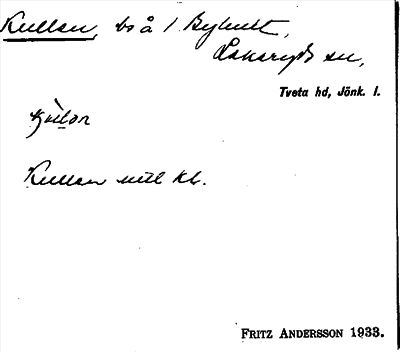 Kullen, bs å 1 Byhult,
Lekeryds sn,
Tveta hd, Jönk. l.
Kullen utl kl.
FRITZ ANDERSSON 1933.